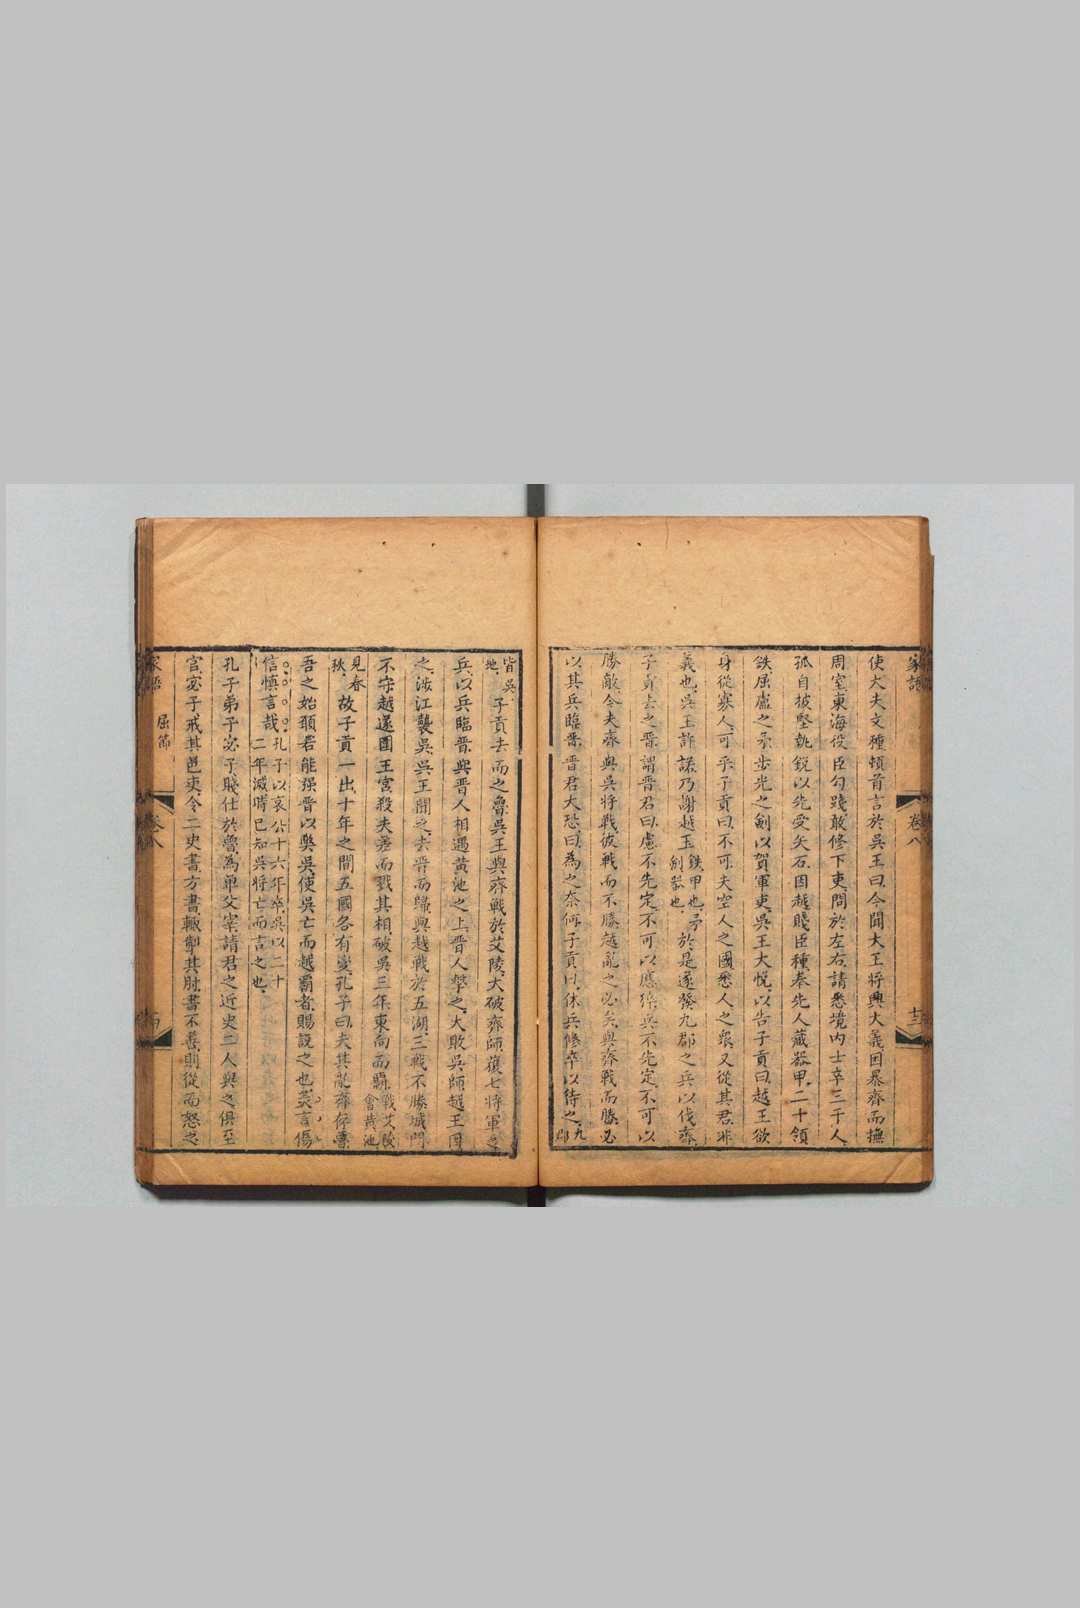 家語
卷八
十三
使大夫文種頓首言於吳王曰今聞大王將興大義因暴齊而撫
周室東海役臣勾踐敢修下吏問於左右請悉境內士卒三千人
孤自披堅執銳以先受矢石因越賤臣種奉先人藏器甲二十領
鈇屈盧之矛步光之劍以賀軍吏吳王大悅以告子貢曰越王欲
身從寡人可乎子貢曰不可夫空人之國悉人之眾又從其君非
義也吳王許諾乃謝越王鈇甲也矛劍器也於是遂發九郡之兵以伐齊
子貢去之晉謂晉君曰慮不先定不可以應猝兵不先定不可以
勝敵今夫齊與吳將戰彼戰而不勝越亂之必矣與齊戰而勝必
以其兵臨晉晉君大恐曰為之奈何子貢曰休兵修卒以待之九郡
皆吳地子貢去而之魯吳王與齊戰於艾陵大破齊師獲七將軍之
兵以兵臨晉與晉人相遇黃池之上晉人擊之大敗吳師越王聞
之涉江襲吳吳王聞之去晉而歸與越戰於五湖三戰不勝城門
不守越遂圍王宮殺夫差而戮其相破吳三年東向而霸戰艾陵會黃池
見春秋故子貢一出十年之間五國各有變孔子曰夫其亂齊存魯
吾之始願若能强晉以弊吳使吳亡而越霸者賜說之也美言傷
信慎言哉孔子以哀公十六年卒吳以二十二年滅時已知吳將亡而言之也
孔子弟子宓子賤仕於魯為單父宰請君之近史二人與之俱至
官宓子戒其邑吏令二史書方書輒掣其肘書不善則從而怒之
家語
屈節
卷八